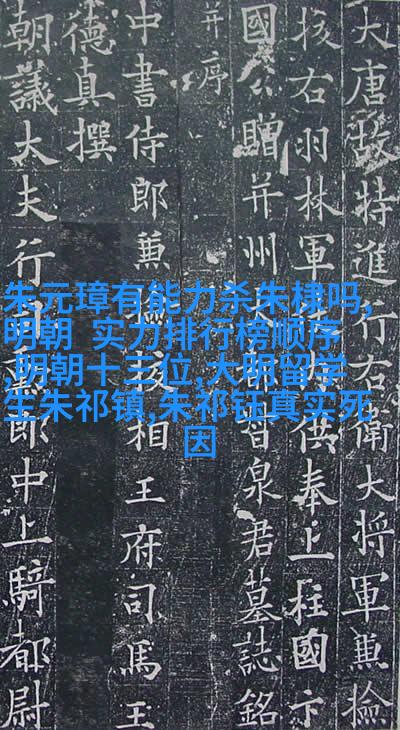 大唐故特進行右衛大將軍兼檢
校右羽林軍供奉上柱國卞
國公贈并州大督泉君墓誌銘
并序
中書侍郎兼檢校相王府司馬王
德真撰
朝議大夫行司勳郎中上騎都尉
朱元璋有能力杀朱棣吗,
明朝 实力排行榜顺序
,明朝十三位,大明留学
生朱祁镇,朱祁钰真实死
因